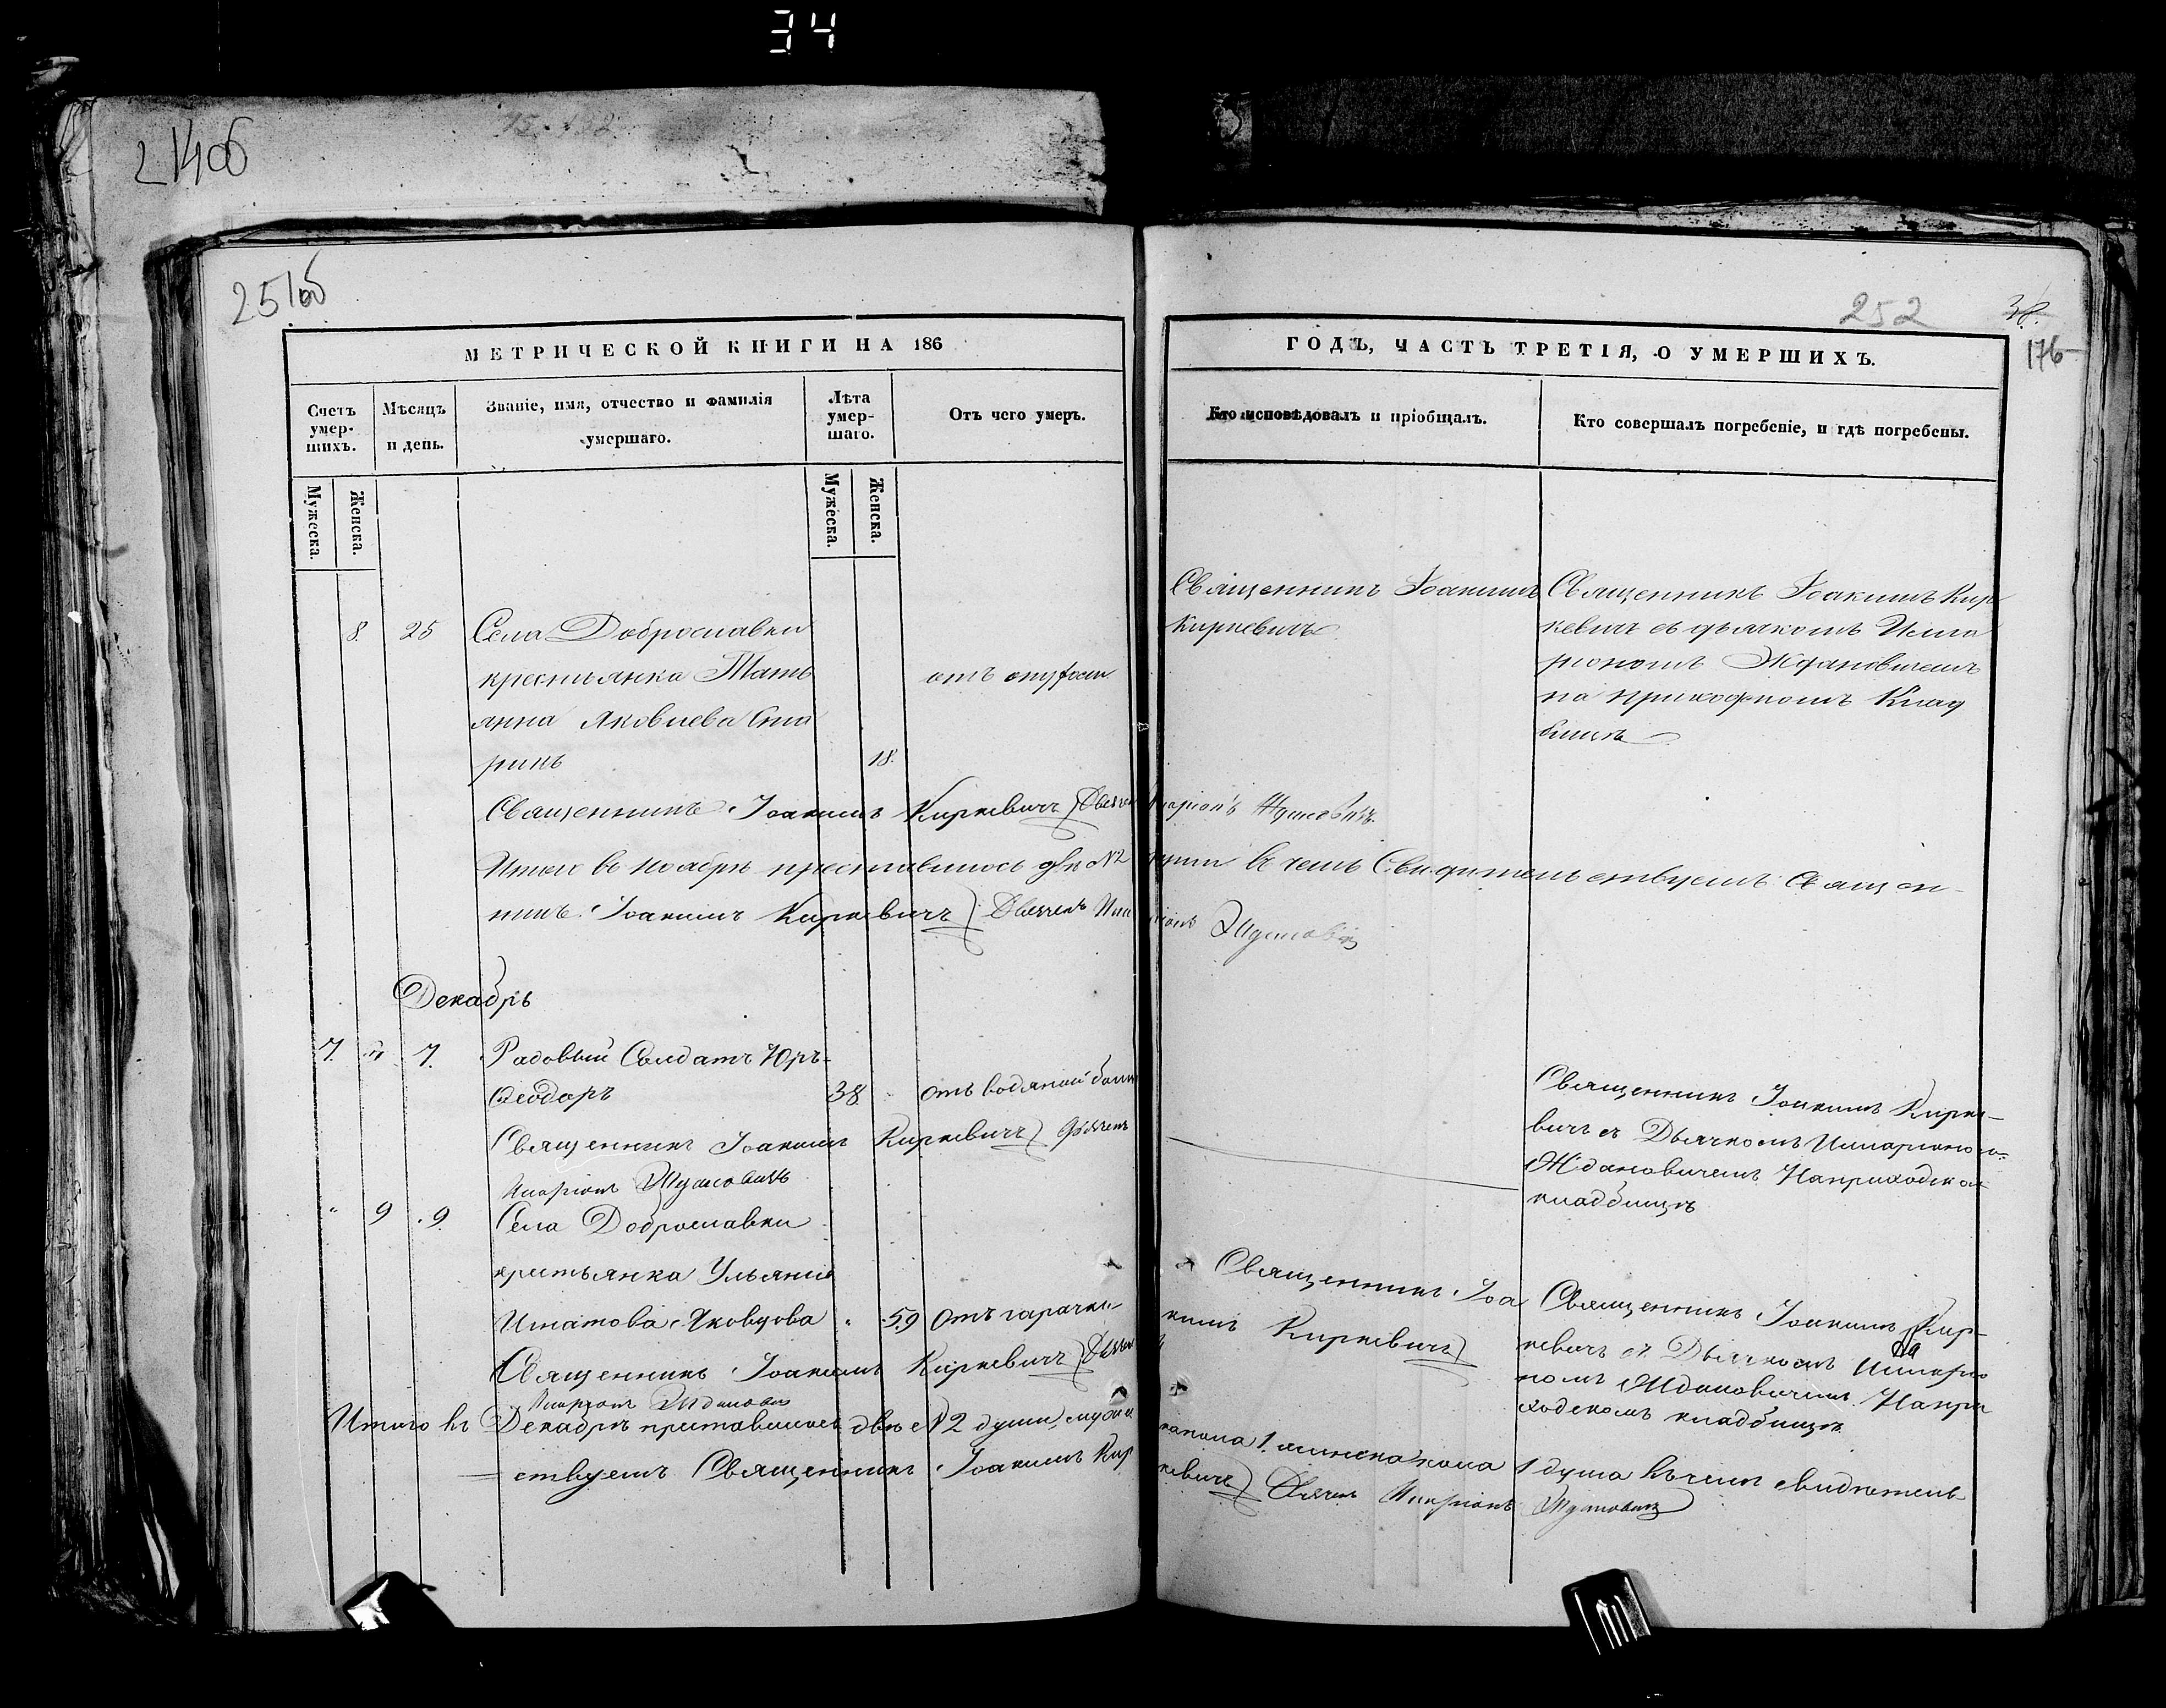 34
214об
251об
252
38.
176
МЕТРИЧЕСКОЙ КНИГИ НА 186
ГОДЪ, ЧАСТЬ ТРЕТІЯ, О УМЕРШИХЪ.
Счетъ умер-
шихъ.
Мѣсяцъ
и день.
Званіе, имя, отчество и фамилія
умершаго.
Лѣта
умер-
шаго.
Отъ чего умеръ.
Кто исповѣдовалъ и пріобщалъ.
Кто совершалъ погребеніе, и гдѣ погребены.
Мужеска.
Женска.
Мужеска.
Женска.
8. 25 Села Доброславки
крестьянка Тать
янна Яковлева
ринъ 18.
отъ
Священникъ Іоакимъ
Киркевичъ
Священникъ Іоакимъ Кир
кевичъ съ дьячкомъ Илла
ріономъ Ждановичемъ
на приходскомъ клад
бищѣ
Священникъ Іоакимъ Киркевичъ Дьячекъ Иларіонъ Ждановичъ
Итого въ ноябрѣ преставилось двѣ №2 души въ чемъ Свидѣтельствуемъ Священ-
никъ Іоакимъ Киркевичъ Дьячекъ Иларіонъ Ждановичъ
Декабрь
7. " 7. Рядовый Солдатъ Юръ-
Ѳеодоръ 38 " отъ водяной
Священникъ Іоакимъ Кирке-
вичъ съ Дьячкомъ Илларіоно-
Ждановичемъ На приходском
кладбищѣ
Священникъ Іоакимъ Киркевичъ Дьячекъ
Иларіонъ Ждановичъ
" 9 9. Села Доброславки
крестьянка Ульяна
Игнатова Яковцова " 59 отъ горячки
Священникъ Іоа
кимъ Киркевичъ
Священникъ Іоакимъ Кир-
кевичъ съ Дьячкомъ Илларіо
номъ Ждановичемъ На при
ходскомъ кладбищѣ
Священникъ Іоакимъ Киркевичъ Дьячекъ
Иларіонъ Ждановичъ
Итого въ Декабрѣ преставилось двѣ №2 души, мужескапола 1. женскапола 1 душа въ чемъ свидѣтель
ствуемъ Священникъ Іоакимъ Киркевичъ Дьячекъ Иларіонъ Ждановичъ